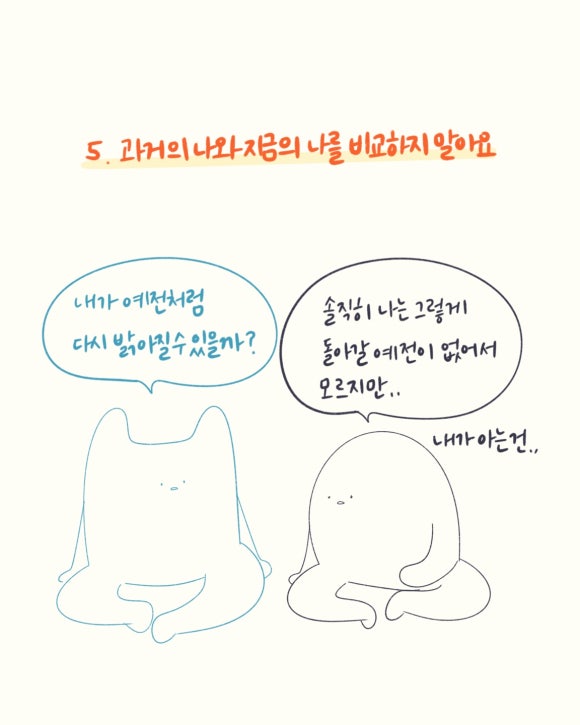 5. 과거의 나와 지금의 나를 비교하지 말아요
내가 예전처럼
다시 밝아질 수 있을까?
솔직히 나는 그렇게
돌아갈 예전이 없어서
모르지만..
내가 아는건..